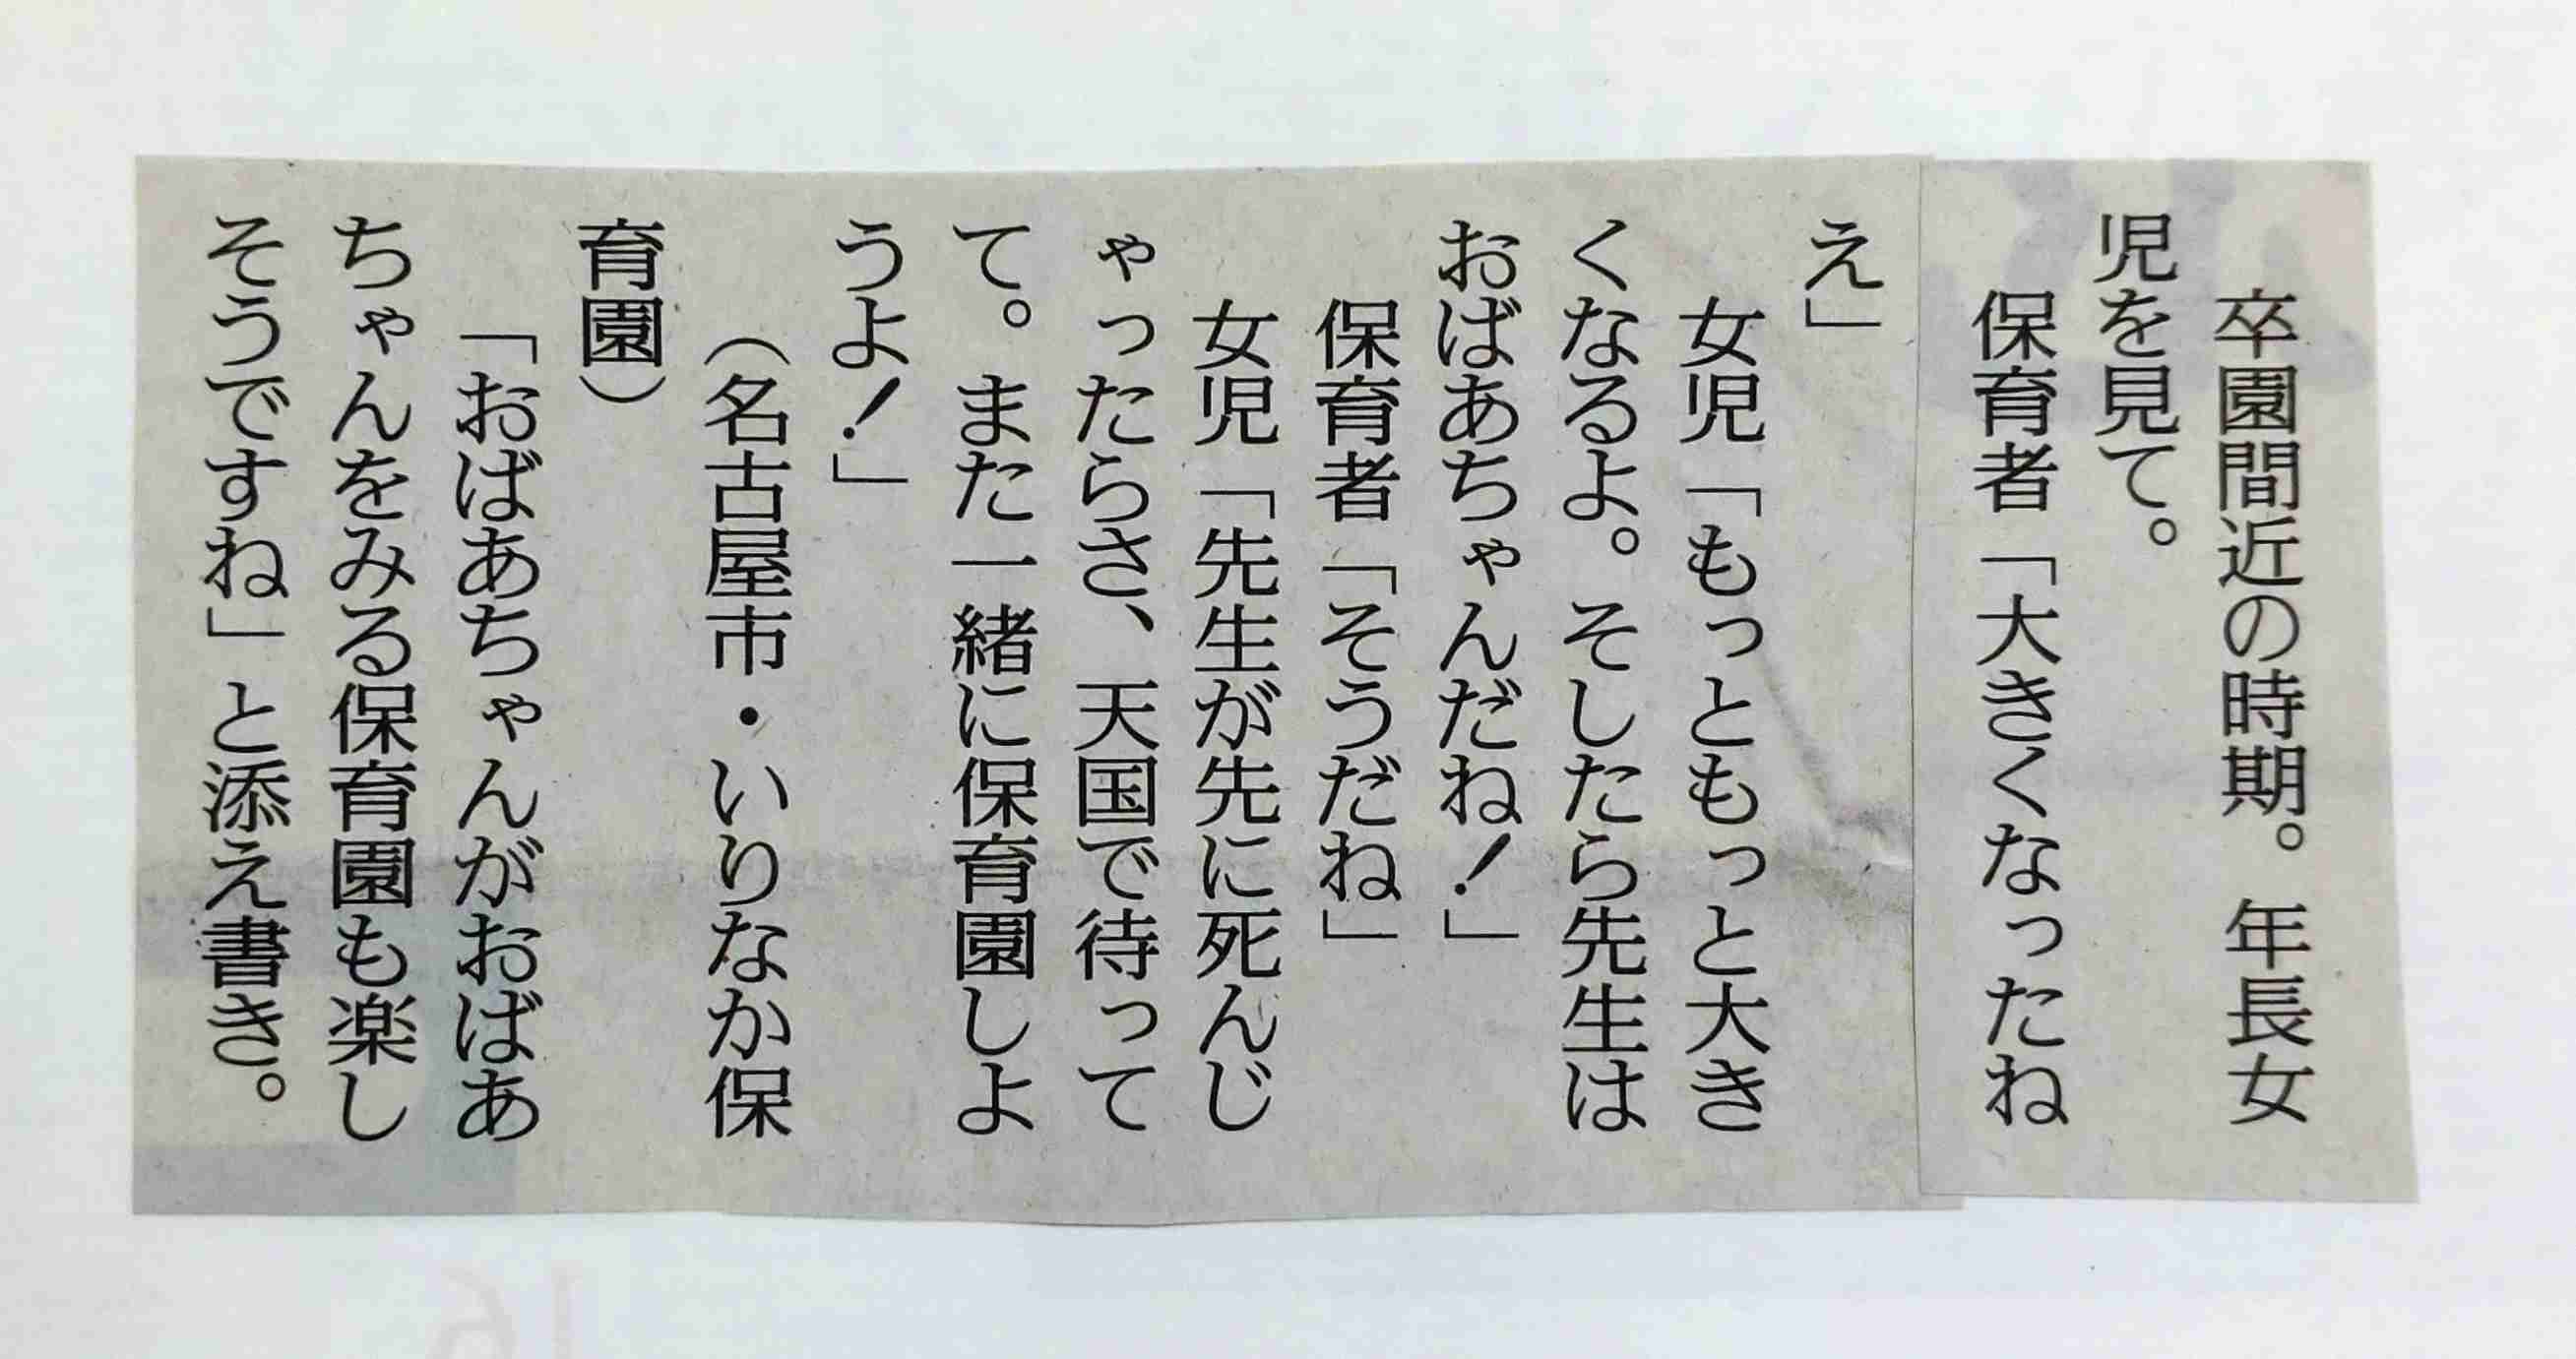 卒園間近の時期。年長女
児を見て。
保育者「大きくなったね
え」
女児「もっともっと大き
くなるよ。そしたら先生は
おばあちゃんだね！」
保育者「そうだね」
女児「先生が先に死んじ
ゃったらさ、天国で待って
て。また一緒に保育園しよ
うよ！」
（名古屋市・いりなか保
育園）
「おばあちゃんがおばあ
ちゃんをみる保育園も楽し
そうですね」と添え書き。